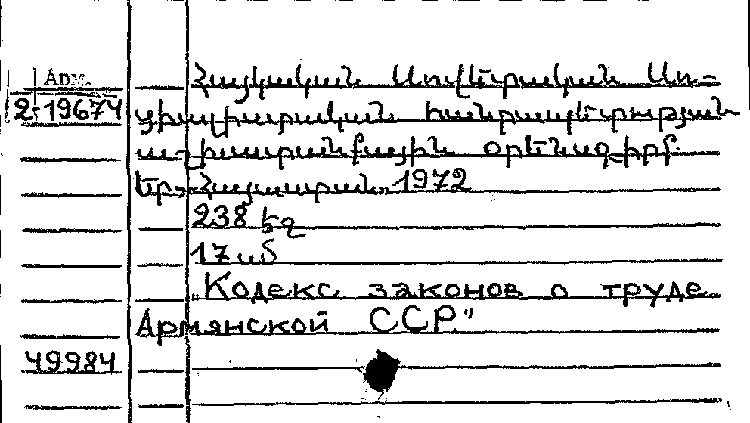 Арм.
2-19674
Հայկական Սովետական Սո-
ցիալիստական հանրապետության
աշխատանքային օրենսգիրք
Եր., Հայաստան, 1972
238 էջ
17 սմ
"Кодекс законов о труде
Армянской ССР"
49984